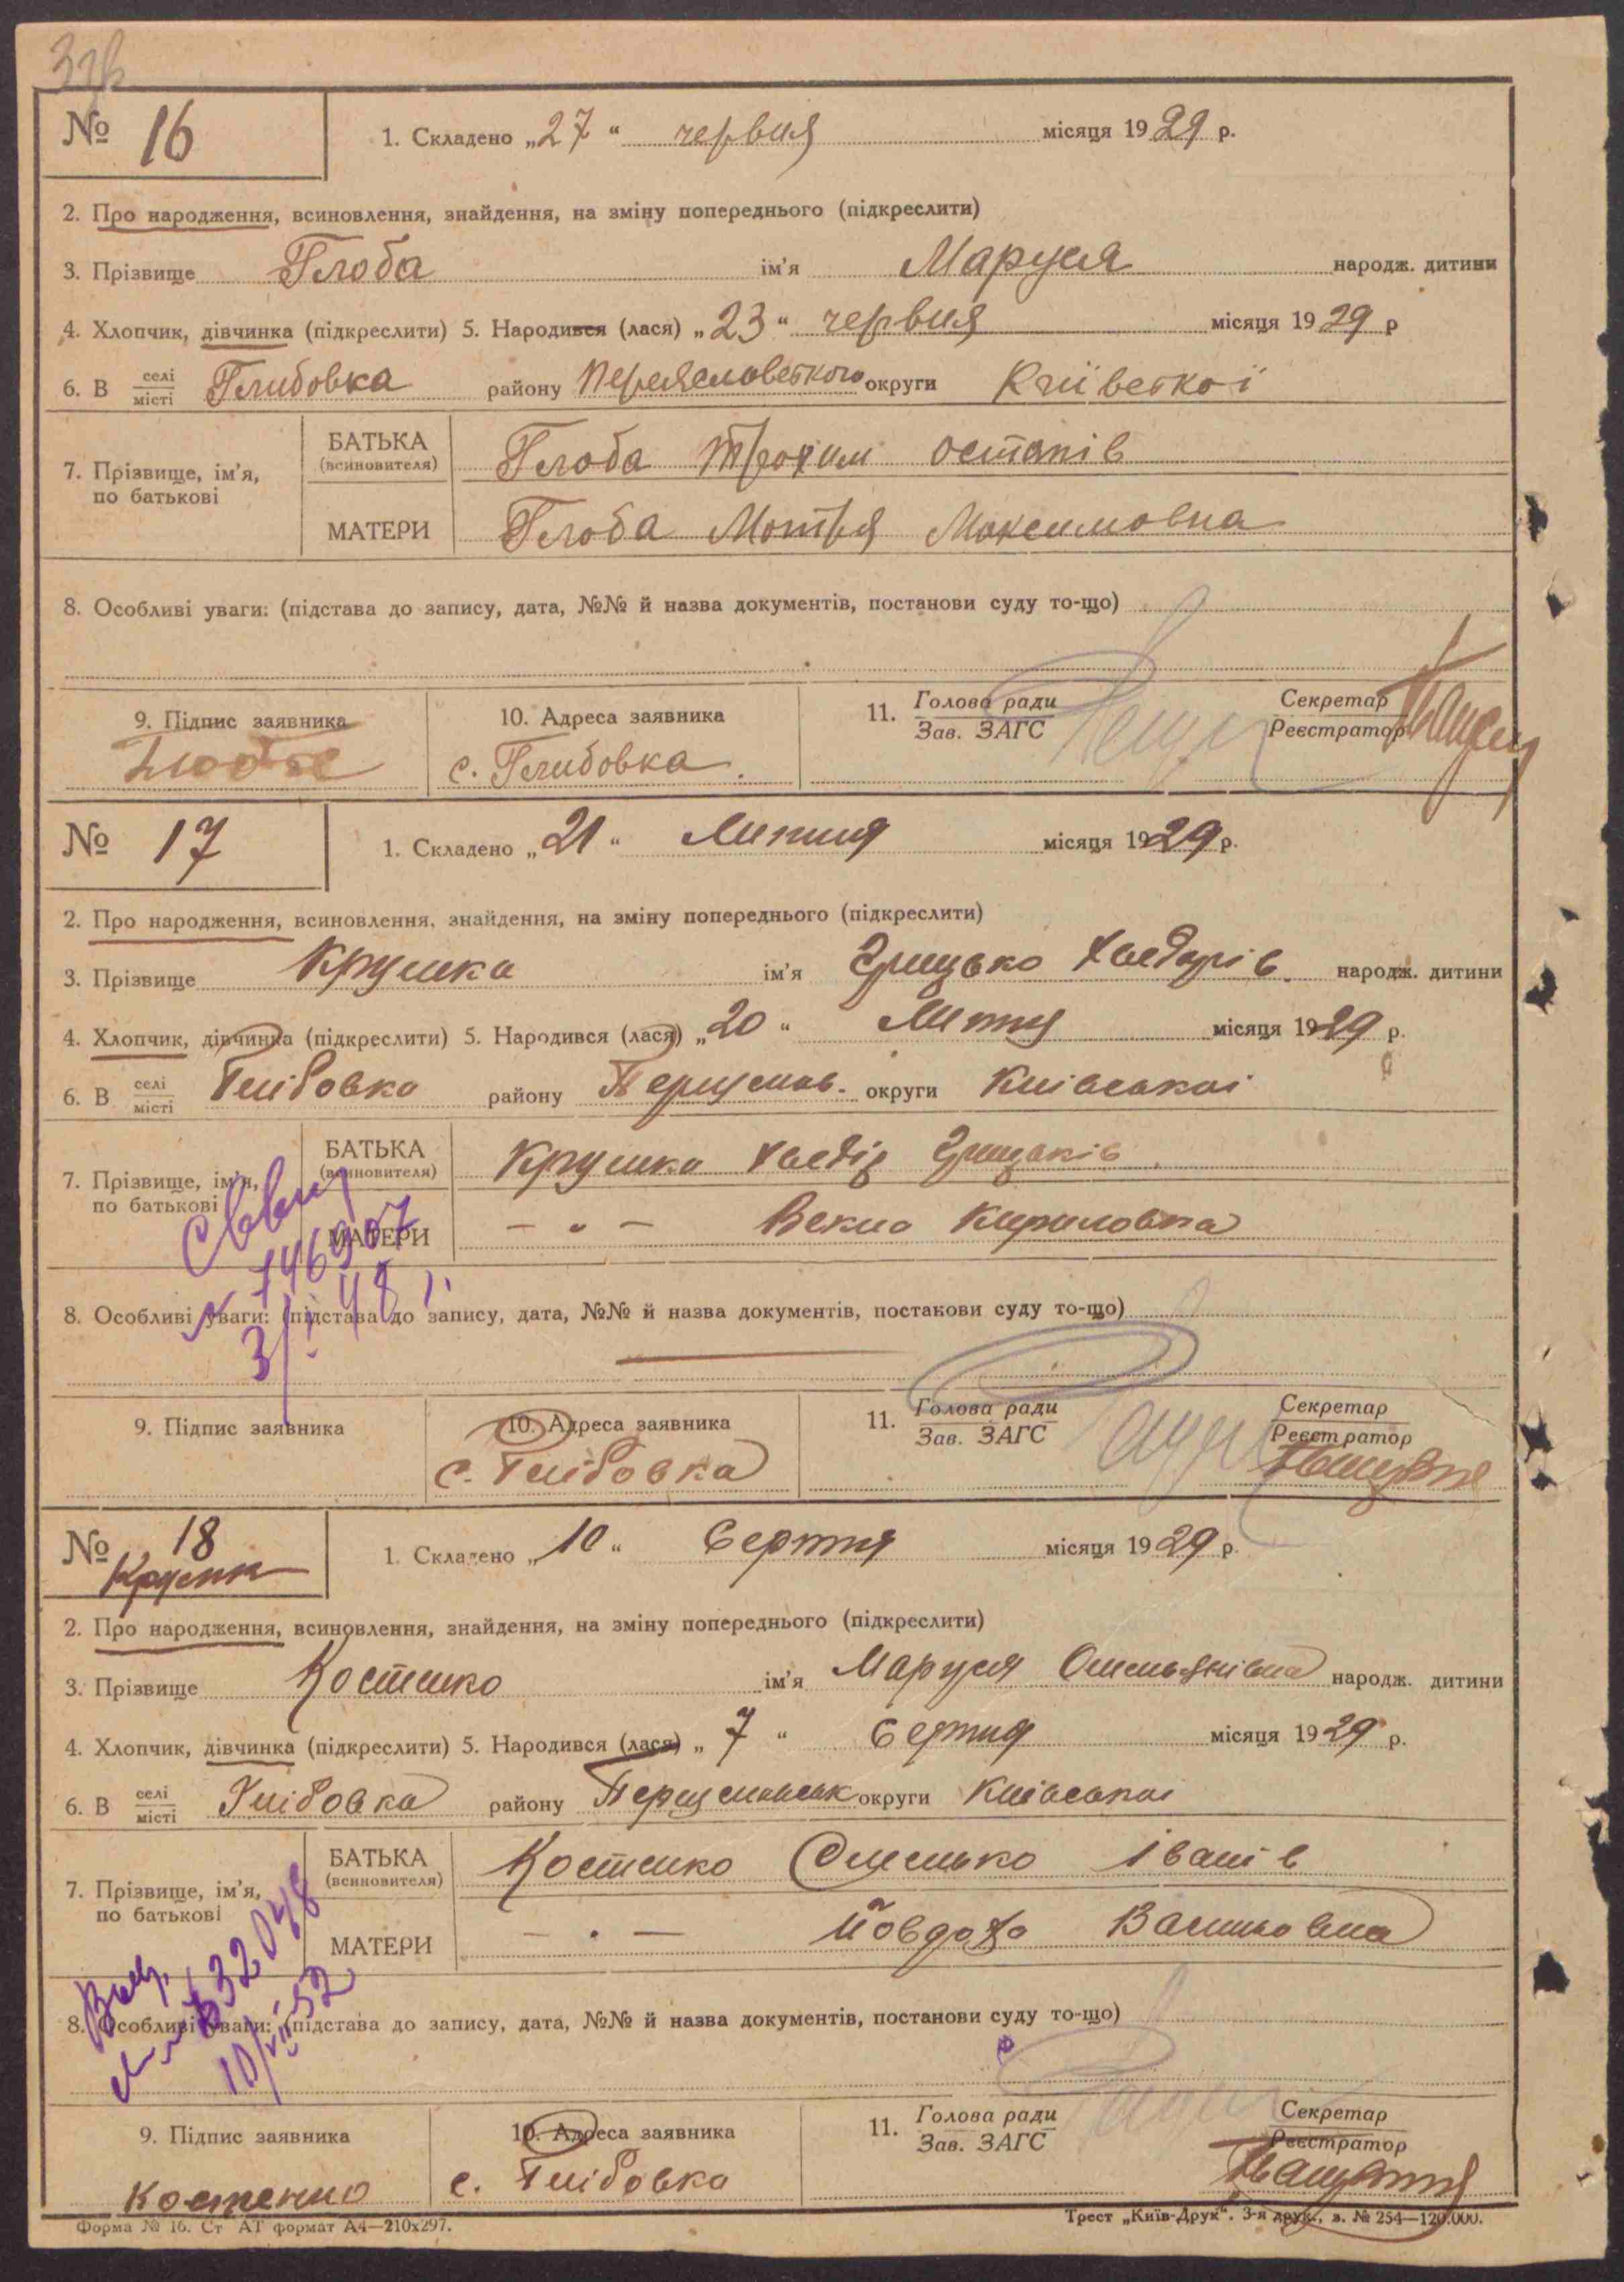 № 16
1. Складено „27“ червня місяця 1929 р.
2. Про народження, всиновлення, знайдення, на зміну попереднього (підкреслити)
3. Прізвище Глоба ім'я Маруся народж. дитини
4. Хлопчик, дівчинка (підкреслити) 5. Народився (лася) „23“ червня місяця 1929 р
6. В селі місті Глибовка району Переяславського округи Київської
7. Прізвище, ім'я, по батькові
БАТЬКА (всиновителя) Глоба Трохим Остапів
МАТЕРИ Глоба Мотря Максимовна
8. Особливі уваги: (підстава до запису, дата, №№ й назва документів, постанови суду то-що)
9. Підпис заявника
10. Адреса заявника
с. Глибовка
11. Голова ради Зав. ЗАГС
Секретар Реєстратор
№ 17
1. Складено „21“ Липня місяця 1929 р.
2. Про народження, всиновлення, знайдення, на зміну попереднього (підкреслити)
3. Прізвище Крушка ім'я Грицько народж. дитини
4. Хлопчик, дівчинка (підкреслити) 5. Народився (лася) „20“ Липня місяця 1929 р.
6. В селі місті Глібовка району округи Київської
7. Прізвище, ім'я, по батькові
БАТЬКА (всиновителя) Крушка Грицьків
МАТЕРИ — " — Векла Кириловна
146907
8. Особливі уваги: (підстава до запису, дата, №№ й назва документів, постанови суду то-що)
9. Підпис заявника
10. Адреса заявника
с. Глібовка
11. Голова ради Зав. ЗАГС
Секретар Реєстратор
№ 18
1. Складено „10“ Серпня місяця 1929 р.
2. Про народження, всиновлення, знайдення, на зміну попереднього (підкреслити)
3. Прізвище Костенко ім'я Маруся Омельянівна народж. дитини
4. Хлопчик, дівчинка (підкреслити) 5. Народився (лася) „7“ Серпня місяця 1929 р.
6. В селі місті Глібовка району округи Київської
7. Прізвище, ім'я, по батькові
БАТЬКА (всиновителя) Костенко Омелько Іванів
МАТЕРИ — " — Йовдоха Васильовна
632048
10/VII-52
8. Особливі уваги: (підстава до запису, дата, №№ й назва документів, постанови суду то-що)
9. Підпис заявника
Костенко
10. Адреса заявника
с. Глібовка
11. Голова ради Зав. ЗАГС
Секретар Реєстратор
Форма № 16. Ст АТ формат А4—210х297.
Трест „Київ-Друк“. 3-я друк., з. № 254—120.000.